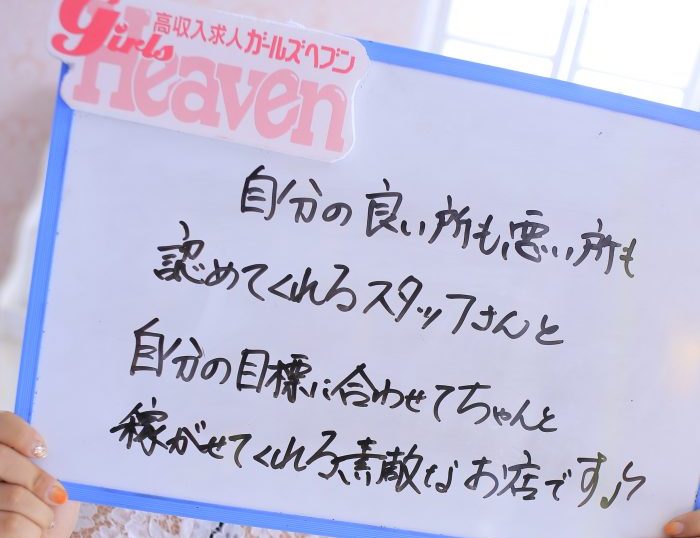 高収入求人ガールズヘブン
girls
Heaven
自分の良い所も、悪い所も
認めてくれるスタッフさんと
自分の目標に合わせてちゃんと
稼がせてくれる、素敵なお店です♪